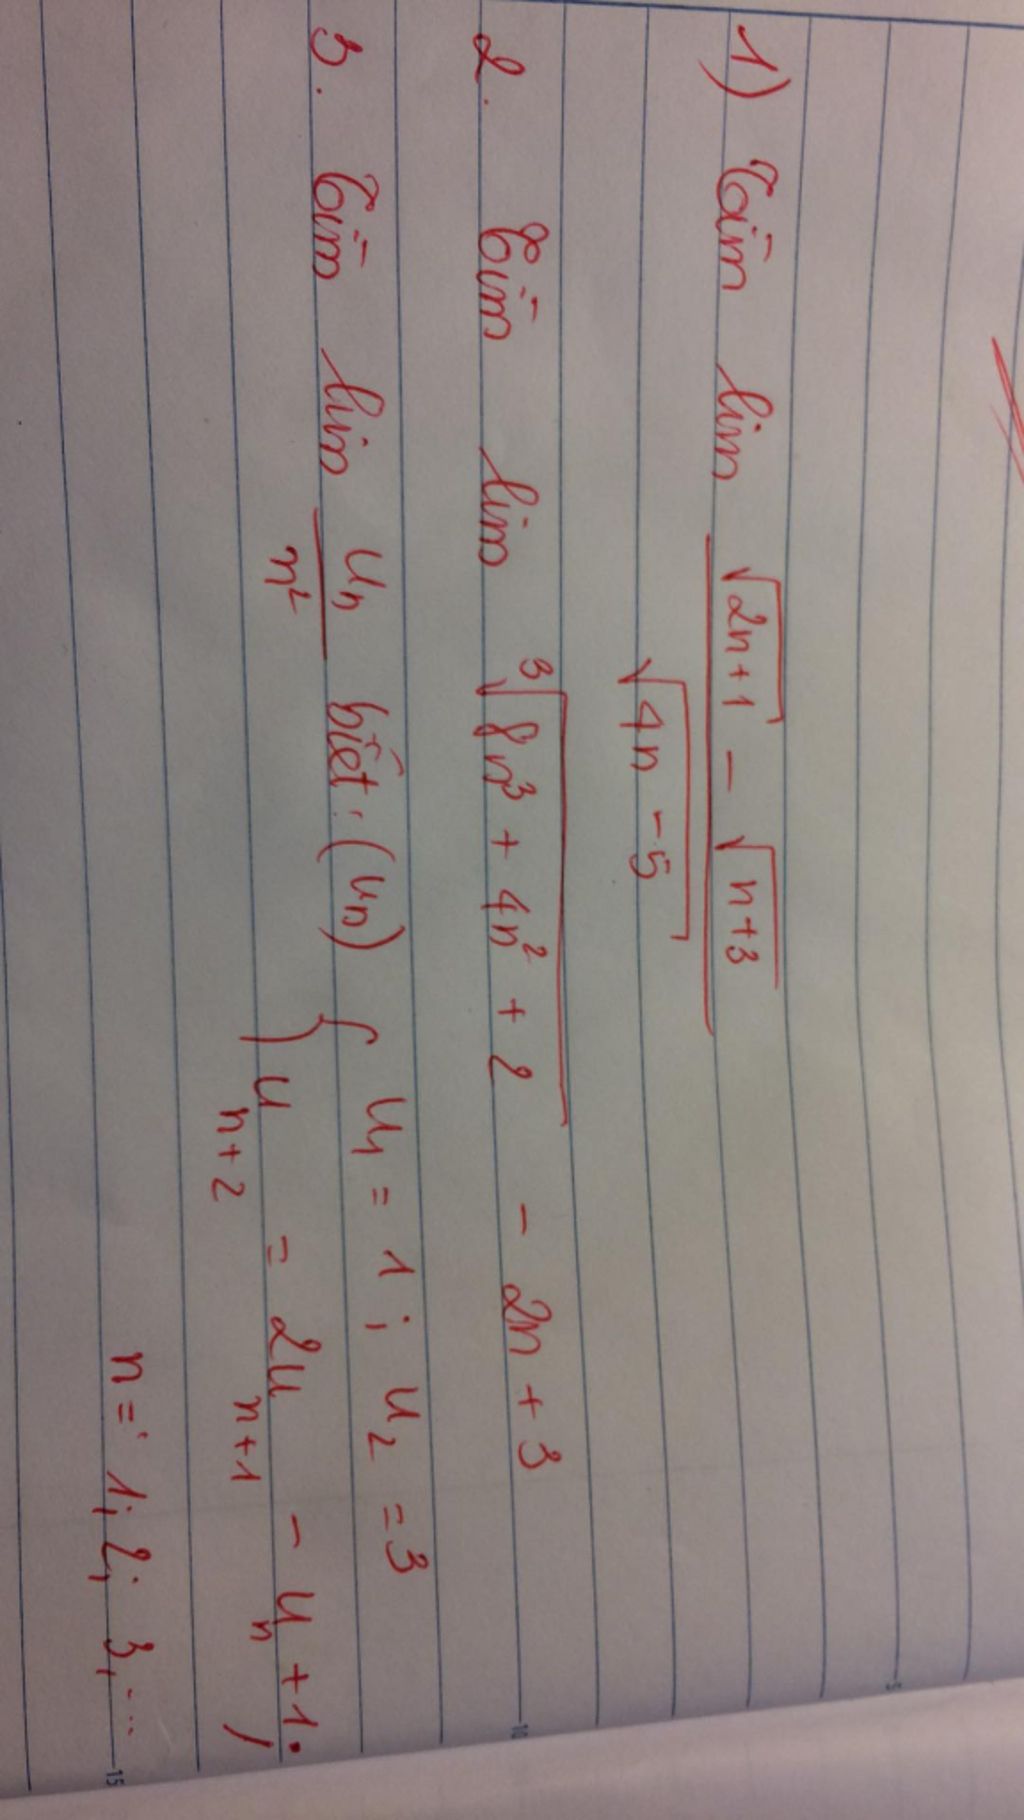 1) Tìm lim (√(2n+1) - √(n+3)) / √(4n-5)
2. Tìm lim ³√(8n³ + 4n² + 2) - 2n + 3
3. Tìm lim uₙ/n² biết: (uₙ) { u₁ = 1 ; u₂ = 3
uₙ₊₂ = 2uₙ₊₁ - uₙ + 1,
n = 1; 2; 3,...
5
10
15